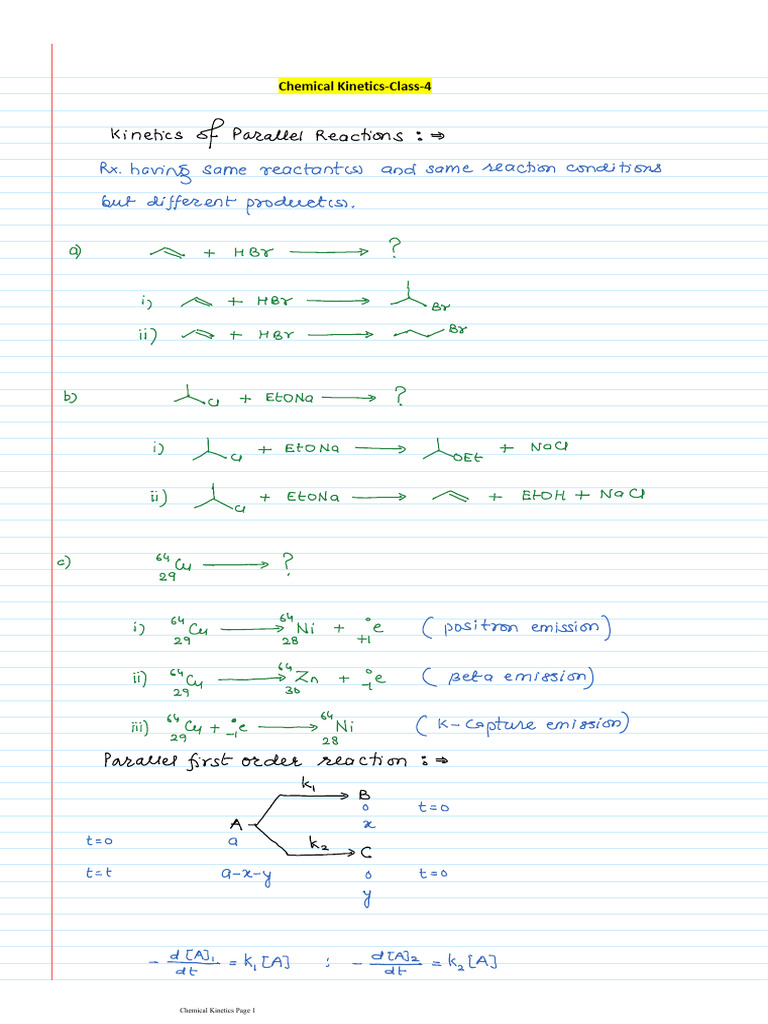 Chemical Kinetics-Class-4
Kinetics of Parallel Reactions : ⇒
Rx. having same reactant(s) and same reaction conditions
but different product(s).
a) + HBr ⟶ ?
i) + HBr ⟶ Br
ii) + HBr ⟶ Br
b) Cl + EtONa ⟶ ?
i) Cl + EtONa ⟶ OEt + NaCl
ii) Cl + EtONa ⟶ + EtOH + NaCl
c) ⁶⁴₂₉Cu ⟶ ?
i) ⁶⁴₂₉Cu ⟶ ⁶⁴₂₈Ni + ⁰₊₁e (positron emission)
ii) ⁶⁴₂₉Cu ⟶ ⁶⁴₃₀Zn + ⁰₋₁e (Beta emission)
iii) ⁶⁴₂₉Cu + ⁰₋₁e ⟶ ⁶⁴₂₈Ni (K-Capture emission)
Parallel first order reaction : ⇒
k₁ B
0 t=0
A x
t=0 a k₂ C
t=t a-x-y 0 t=0
y
- d[A]₁/dt = k₁[A] : - d[A]₂/dt = k₂[A]
Chemical Kinetics Page 1